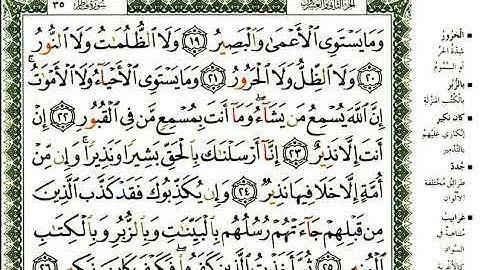 سُورَةُ فَاطِرٍ ٣٥
الجزء الثاني والعشرون
وَمَا يَسْتَوِى ٱلْأَعْمَىٰ وَٱلْبَصِيرُ ١٩ وَلَا ٱلظُّلُمَٰتُ وَلَا ٱلنُّورُ
٢٠ وَلَا ٱلظِّلُّ وَلَا ٱلْحَرُورُ ٢١ وَمَا يَسْتَوِى ٱلْأَحْيَآءُ وَلَا ٱلْأَمْوَٰتُ
إِنَّ ٱللَّهَ يُسْمِعُ مَن يَشَآءُ وَمَآ أَنتَ بِمُسْمِعٍ مَّن فِى ٱلْقُبُورِ ٢٢ إِنْ
أَنتَ إِلَّا نَذِيرٌ ٢٣ إِنَّآ أَرْسَلْنَٰكَ بِٱلْحَقِّ بَشِيرًا وَنَذِيرًا وَإِن مِّنْ
أُمَّةٍ إِلَّا خَلَا فِيهَا نَذِيرٌ ٢٤ وَإِن يُكَذِّبُوكَ فَقَدْ كَذَّبَ ٱلَّذِينَ
مِن قَبْلِهِمْ جَآءَتْهُمْ رُسُلُهُم بِٱلْبَيِّنَٰتِ وَبِٱلزُّبُرِ وَبِٱلْكِتَٰبِ
ٱلْمُنِيرِ ٢٥ ثُمَّ أَخَذْتُ ٱلَّذِينَ كَفَرُوا۟ فَكَيْفَ كَانَ نَكِيرِ ٢٦
الْحَرُورُ
شِدَّةُ الحَرِّ
أو السَّمُومُ
بِالزُّبُرِ
بِالكُتُبِ المُنَزَّلَةِ
كَانَ نَكِيرِ
إنْكَارِي عَلَيْهِمْ
بِالتَّدْمِيرِ
جُدَدٌ
طَرَائِقُ مُخْتَلِفَةُ
الأَلْوَانِ
غَرَابِيبُ
مُتَنَاهِيَةٌ فِي
السَّوَادِ
كالأَغْرِبَةِ